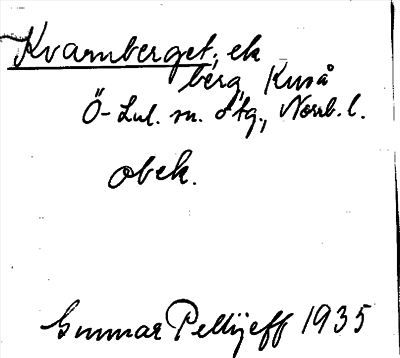 Kvarnberget, ek
berg, Kuså
Ö-Lul. sn. o tg., Norrb. l.
obek.
Gunnar Pellijeff 1935